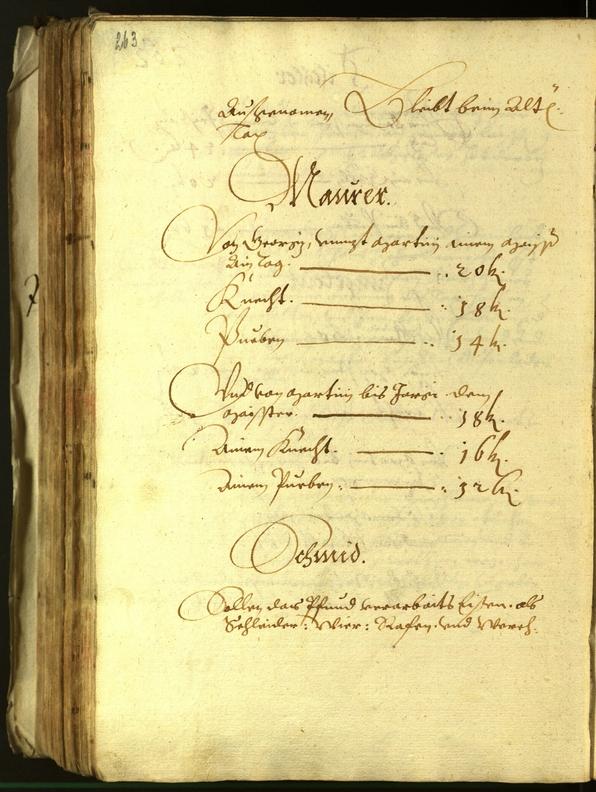 263
Außgenomen Bleibt beim Alt:
Tax
Maurer.
Von Georgy, unnzt Martini, einem Maister
ain Tag. 20 k.
Knecht. 18 k.
Pueben 14 k.
Und von Martini bis Jorgi dem
Maister. 18 k.
Ainem Knecht. 16 k.
Ainem Pueben. 12 k.
Schmid.
Sollen das Pfund verarbaits Eisen. als
Schleider: Wier: Rafen. und